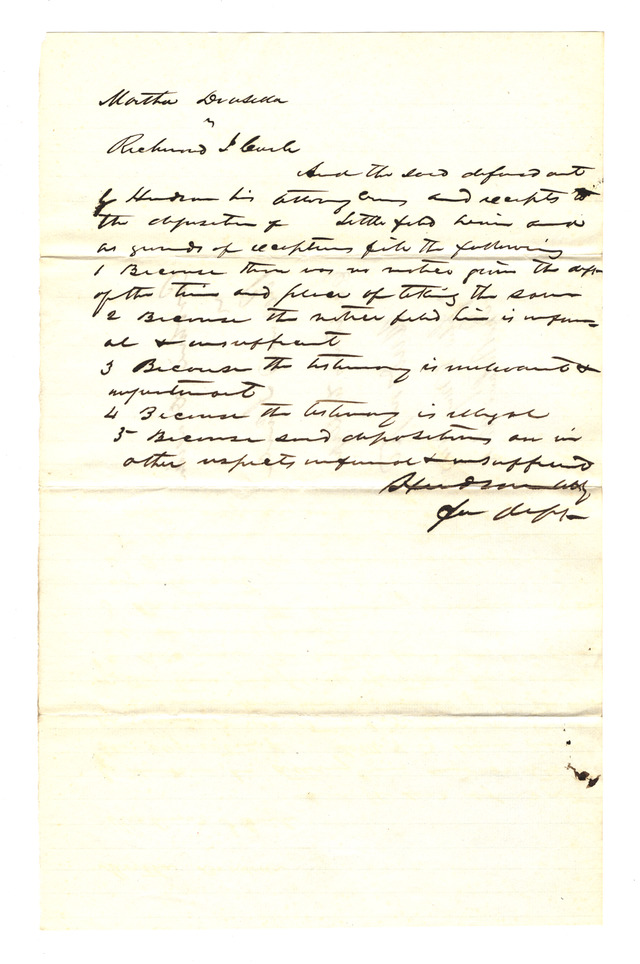 Martha
v
Richmond J Curle
And the said defendant
by Hudson his attorney comes and excepts to
the deposition of Littlefield herein and
as grounds of exceptions file the following
1 Because there was no notice given the deft
of the time and place of taking the same
2 Because the notice filed herein is inform
al & insufficient
3 Because the testimony is irrelevant &
4 Because the testimony is illegal
5 Because said depositions are in
other respects informal & insufficient
Hudson Atty
for deft